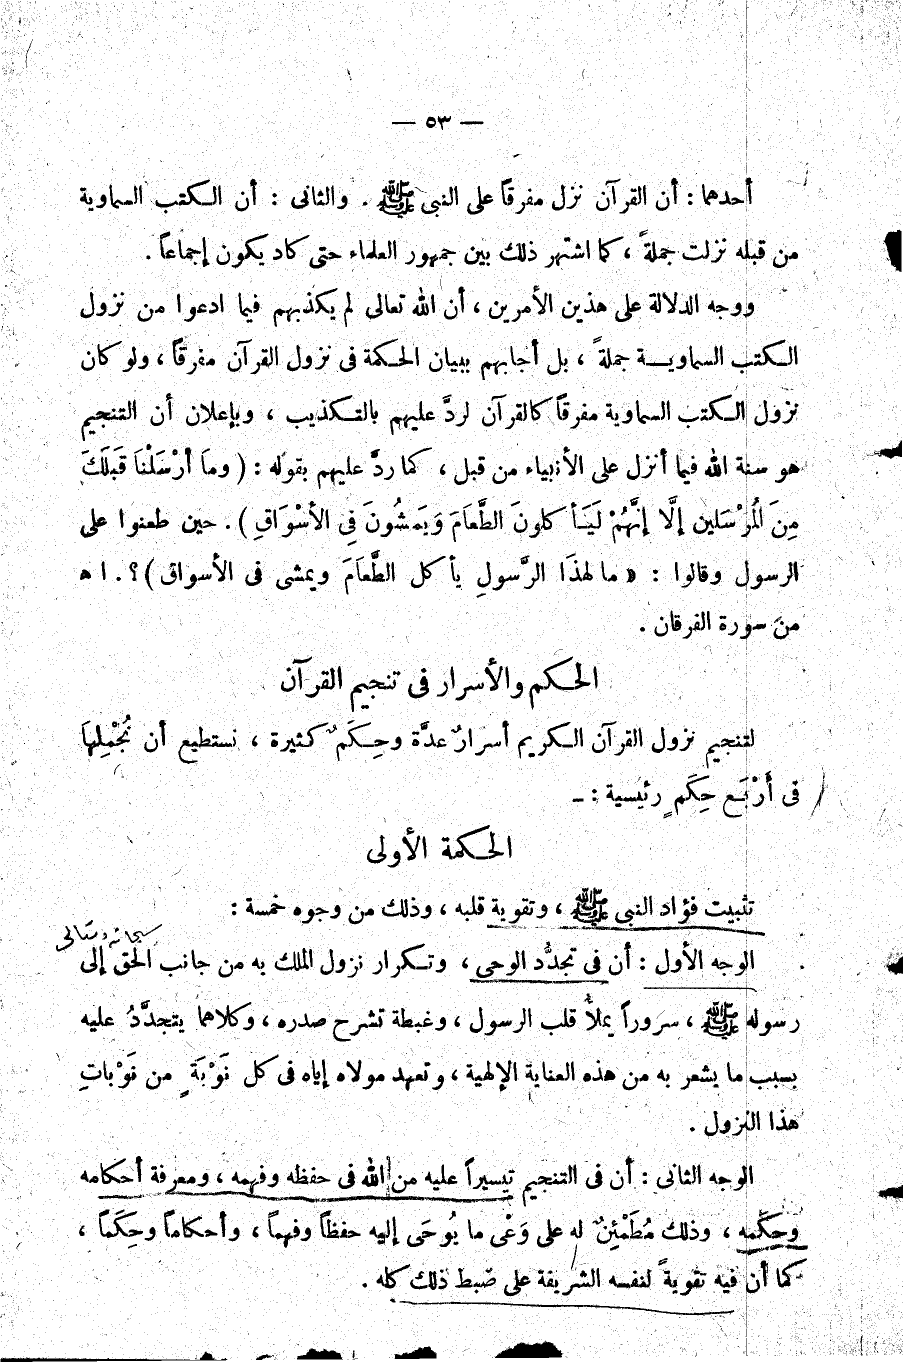 — ٥٣ —
أحدهما : أن القرآن نزل مفرقاً على النبى ﷺ . والثانى : أن الكتب السماوية
من قبله نزلت جملةً ، كما اشتهر ذلك بين جمهور العلماء حتى كاد يكون إجماعاً .
ووجه الدلالة على هذين الأمرين ، أن الله تعالى لم يكذبهم فيما ادعوا من نزول
الكتب السماويـــة جملةً ، بل أجابهم ببيان الحكمة فى نزول القرآن مفرقاً ، ولو كان
نزول الكتب السماوية مفرقاً كالقرآن لردَّ عليهم بالتكذيب ، وبإعلان أن التنجيم
هو سنة الله فيما أنزل على الأنبياء من قبل ، كما ردَّ عليهم بقوله : ( ومَا أرْسَلْنَا قَبْلَكَ
مِنَ الْمُرْسَلين إلَّا إنَّهُمْ لَيَـأ كلونَ الطَّعَامَ وَيَمشُونَ فِى الأسْوَاقِ ) . حين طعنوا على
الرسول وقالوا : « ما لهذَا الرَّسولِ يأ كل الطَّعَامَ ويمشى فى الأسواق ) ؟ . ا ه
من سورة الفرقان .
الحكم والأسرار فى تنجيم القرآن
لتنجيم نزول القرآن الكريم أسرارٌ عدَّة وحِكَمٌ كثيرة ، نستطيع أن نُجْمِلَها
فى أَرْبَع حِكَمٍ رئيسية : ـ
الحكمة الأولى
تثبيت فؤاد النبى ﷺ ، وتقوية قلبه ، وذلك من وجوه خمسة :
سبحانه وتعالى
الوجه الأول : أن فى تجدُّد الوحى ، وتكرار نزول الملك به من جانب الحق إلى
رسوله ﷺ ، سروراً يملأُ قلب الرسول ، وغبطة تشرح صدره ، وكلاهما يتجدَّدُ عليه
بسبب ما يشعر به من هذه العناية الإلهية ، وتعهد مولاه إياه فى كل نَوْبَةٍ من نَوْباتِ
هذا النزول .
الوجه الثانى : أن فى التنجيم تيسيراً عليه من الله فى حفظه وفهمه ، ومعرفة أحكامه
وحِكَمه ، وذلك مُطَمْئِنٌ له على وَعْى ما يُوحَى إليه حفظاً وفهماً ، وأحكاماً وحِكَماً ،
كما أن فيه تقويةً لنفسه الشريفة على ضبط ذلك كله .